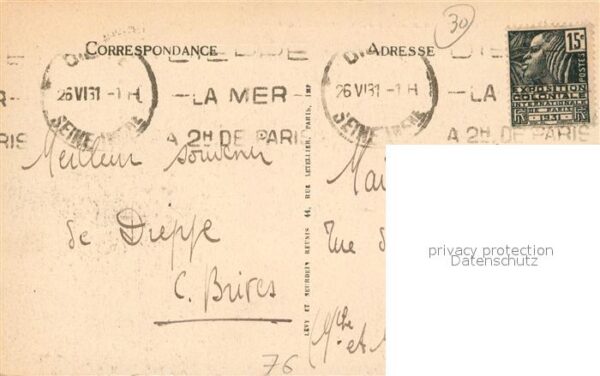 30
CORRESPONDANCE
ADRESSE
DIEPPE
26 VI 31 -1 H
SEINE INFRE
LA MER
A 2H DE PARIS
26 VI 31 -1 H
SEINE INFRE
LA
A 2H DE PARIS
15c
POSTES
EXPOSITION
COLONIALE
INTERNATIONALE
PARIS
1931
Meilleur souvenir
de Dieppe
C. Brives
LÉVY ET NEURDEIN RÉUNIS 44, RUE LETELLIER, PARIS, IMP
rue d
et
76
privacy protection
Datenschutz